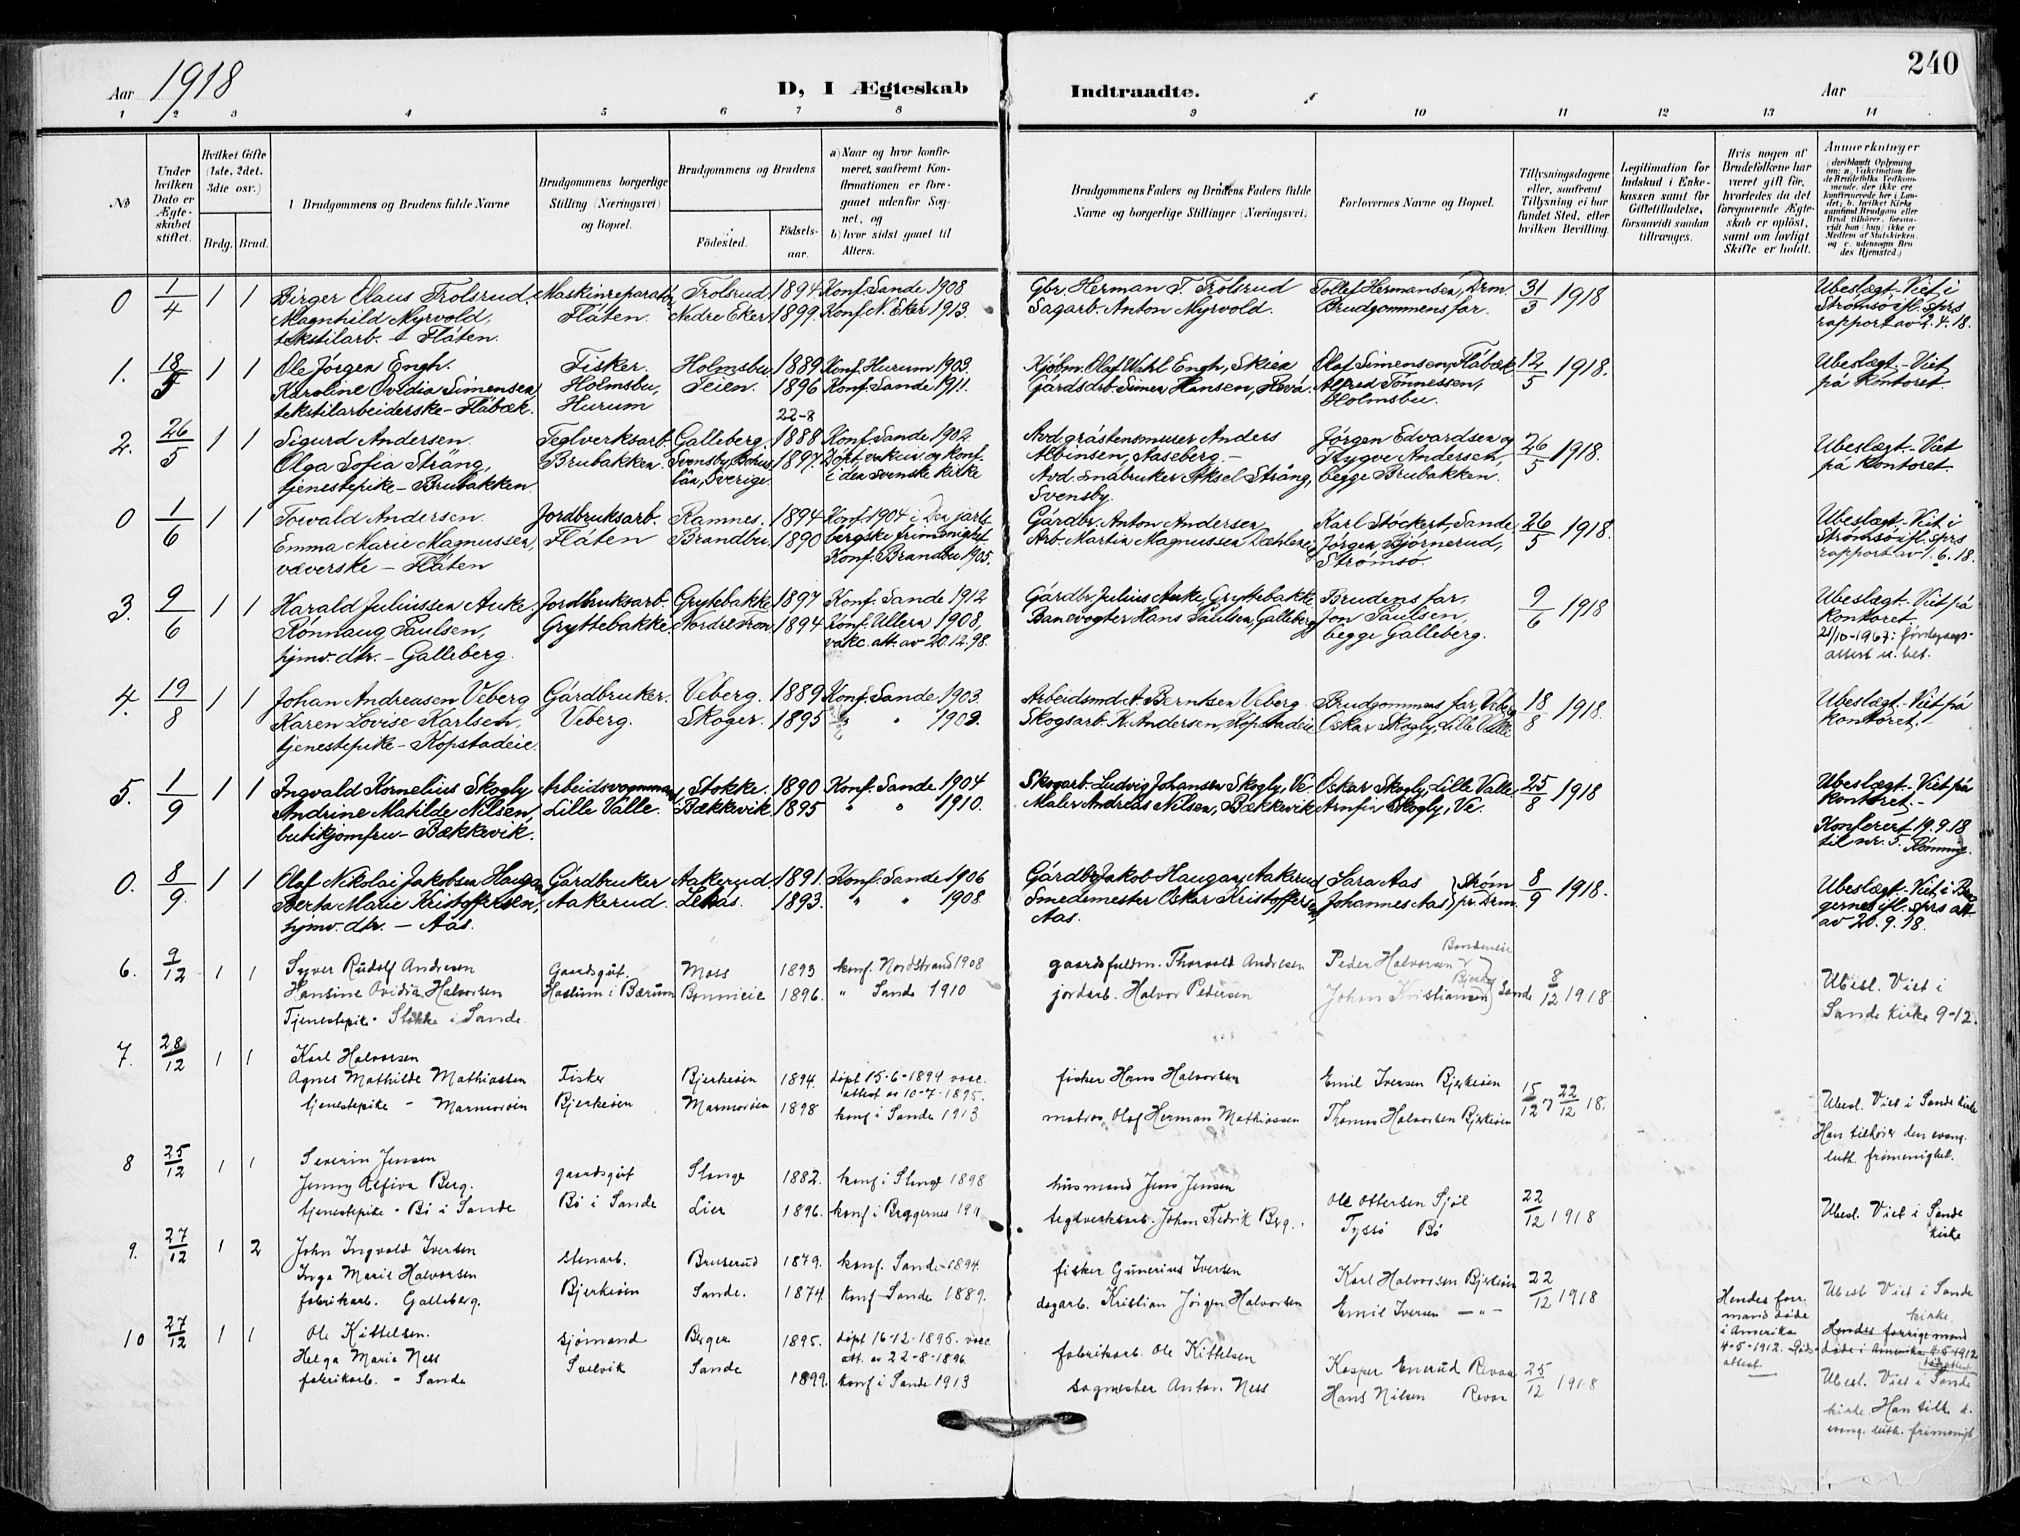 240
Aar 1918
D, I Ægteskab Indtraadte.
Aar
1 2 3 4 5 6 7 8 9 10 11 12 13 14
No
Under hvilken Dato er Ægteskabet stiftet.
Hvilket Gifte (1ste, 2det, 3die osv.)
Brdg. Brud.
Brudgommens og Brudens fulde Navne
Brudgommens borgerlige Stilling (Næringsvei) og Bopæl.
Brudgommens og Brudens
Födested.
Födsels-aar.
a) Naar og hvor konfirmeret, saafremt Konfirmationen er foregaaet udenfor Sognet, og
b) hvor sidst gaaet til Alters.
Brudgommens Faders og Brudens Faders fulde Navne og borgerlige Stillinger (Næringsvei)
Forlovernes Navne og Bopæl.
Tillysningsdagene eller, saafremt Tillysning ei har fundet Sted, efter hvilken Bevilling.
Legitimation for Indskud i Enkekassen samt for Giftetilladelse, forsaavidt saadan tiltrænges.
Hvis nogen af Brudefolkene har været gift før, hvorledes da det foregaaende Ægteskab er opløst, samt om lovligt Skifte er holdt.
Anmærkninger
0 1/4 1 1 Birger Olaus Trolsrud, Maskinreparatör Trolsrud 1894 Konf. Sande 1908 Gbr. Herman T. Trolsrud Tollef Hermansen, Drm. 31/3 1918 Ubeslægt. - Viet i
Magnhild Myrvold, Flåten. Nedre Eker 1899. Konf. N. Eker 1913. Sagarb. Anton Myrvold. Brudgommens far. Strømsö ifl. sprs
tekstilarb. - Flåten. rapport av 2.4.18.
1. 18/5 1 1 Ole Jørgen Engh. Fisker Holmsbu 1889 Konf. Hurum 1903. Kjöbm. Olaf Wahl Engh, Skien Olaf Simensen, Flåbæk 12/5 1918. Ubeslægt - Viet
Karoline Ovidia Simensen Holmsbu, Teien. 1896 Konf. Sande 1911. Gårdsarb. Simen Hansen, Revå Alfred Tönnessen, på kontoret.
tekstilarbeiderske - Flåbæk. Hurum 22-8 Holmsbu.
2. 26/5 1 1 Sigurd Andersen. Teglverksarb. Galleberg. 1888 Konf. Sande 1902. Avd. gråstensmurer Anders Jörgen Edvardsen og 26/5 1918. Ubeslægt - Viet
Olga Sofia Sträng, Brubakken. Svensby, Bohus 1897. Döpt, vakc. og konf. Albinsen, Aaseberg. - Trygve Andersen, på kontoret.
tjenestepike - Brubakken län, Sverige i den svenske kirke Avd. småbruker Aksel Sträng, begge Brubakken.
Svensby.
0 1/6 1 1 Torvald Andersen. Jordbruksarb. Ramnes. 1894 Konf. 1904 i Den jarls Gårdbr. Anton Andersen Karl Stöckert, Sande 26/5 1918. Ubeslægt - Viet i
Emma Marie Magnussen, Flåten Brandbu. 1890 bergske frimenighet Arb. Martin Magnussen Dæhlene Jørgen Bjørnerud, Strømsö ifl. sprs
væverske - Flåten Konf. Brandbu 1905. Strømsö. rapport av 1.6.18.
3. 9/6 1 1 Harald Juliussen Auke. Jordbruksarb. Grytebakke 1897 Konf. Sande 1912 Gårdbr. Julius Auke, Gryttebakke Brudens far, 9/6 1918 Ubeslægt. Viet på
Rönnaug Paulsen, Gryttebakke. Nordre Fron 1894 Konf. Ullern 1908, Banevogter Hans Paulsen, Galleberg Jon Paulsen, kontoret.
hjmv. dtr. - Galleberg. vakc. att. av 20.12.98. begge Galleberg. 21/10-1967: fördsels-
attest u. bet.
4. 19/8 1 1 Johan Andreasen Veberg Gårdbruker. Veberg. 1889 Konf. Sande 1903. Arbeidsmd A. Berntsen Veberg. Brudgommens far, Veberg 18/8 1918. Ubeslægt - Viet på
Karen Lovise Karlsen, Veberg. Skoger. 1895 " " 1909. Skogsarb. K. Andersen, Kopstadeie Oskar Skogly, Lille Valle kontoret.
tjenestepike - Kopstadeie.
5. 1/9 1 1 Ingvald Kornelius Skogly Arbeidsvognmand Stokke. 1890 Konf. Sande 1904 Skogarb. Ludvig Johansen Skogly, Ve. Oskar Skogly, Lille Valle 25/8 1918 Ubeslægt - Viet på
Andrine Matilde Nilsen, Lille Valle. Bækkevik 1895 " " 1910. Maler Andreas Nilsen, Bækkevik Arnfin Skogly, Ve. kontoret. -
butikjomfru - Bækkevik. Konferert 19.9.18
til nr. 5. Rönning.
0. 8/9 1 1 Olaf Nikolai Jakobsen Haugan Gårdbruker Aakerud. 1891. Konf. Sande 1906 Gårdbr. Jakob Haugan, Aakerud Sara Aas } Strøm 8/9 1918. Ubeslægt. - Viet i Bra
Berta Marie Kristoffersen, Aakerud. Lenås. 1893. " " 1908. Smedemester Oskar Kristoffersen Johannes Aas } pr. Drm. gernes ifl. sprs att
hjmv. dtr. - Aas. Aas. av 20.9.18.
6. 9/12 1 1 Syver Rudolf Andresen Gaardsgut. Moss 1893 konf. Nordstrand 1908 gaardsfuldm. Thorvald Andresen Peder Halvorsen Bondeneie 8/12 1918. Ubesl. Viet i
Hansine Ovidia Halvorsen Haslum i Bærum Bonneeie 1896. " Sande 1910 jordarb. Halvor Pedersen Johan Kristiansen Sande Sande kirke 9-12.
Tjenestepik. Stokke i Sande.
7. 28/12 1 1 Karl Halvorsen
Agnes Mathilde Mathiassen Fisker Bjerkeöen 1894. döpt 15-6-1894 vacc. fisker Hans Halvorsen Emil Iversen Bjerkeöen 15/12 & 22/12 18. Ubesl. Viet i Sande kirke
attest av 10-7-1895.
tjenestepike - Marmoröen Bjerkeöen Marmoröen 1898 konf i Sande 1913 matros Olaf Herman Mathiassen Thomas Halvorsen Bjerkeöen Han tilhörer den evang.
luth. frimenighet.
8 25/12 1 1 Severin Jensen gaardsgut Slange 1882. konf i Slange 1898 husmand Jens Jensen Ole Ottersen Sjöl 22/12 1918 Ubesl. Viet i Sande
Jenny Alfiva Berg. Bö i Sande Lier 1896. konf i Bragernes 1911 teglverksarb. Johan Fredrik Berg. Tyssö Bö kirke
tjenestepike - Bö i Sande
9. 27/12 1 2 John Ingvald Iversen stenarb. Bruserud 1879. konf. Sande 1894. fisker Gunerius Iversen Karl Halvorsen Bjerkeöen 22/12 1918 Ubesl Viet i Sande
Inga Marie Halvorsen Bjerkeöen Sande. 1874. konf. Sande 1889. dagarb. Kristian Jörgen Halvorsen Emil Iversen - " - kirke.
fabrikarb. Galleberg. Hendes forr. mand döde i Amerika 4-5-1912. Döds attest
Hendes forrige mand döde i Amerika 4-5-1912
10 27/12 1 1 Ole Kittelsen. sjömand Berger 1895. döpt 16-12-1895. vacc fabrikarb. Ole Kittelsen Kasper Enerud Revaa 25/12 1918 Ubesl. Viet i Sande
att. av 22-8-1896.
Helga Marie Ness Svelvik Sande 1899. konf i Sande 1913 sagmester Anton Ness Hans Nilsen Revaa kirke Han tilh. d.
fabrikarb. - Sande evang. luth. frimenigh